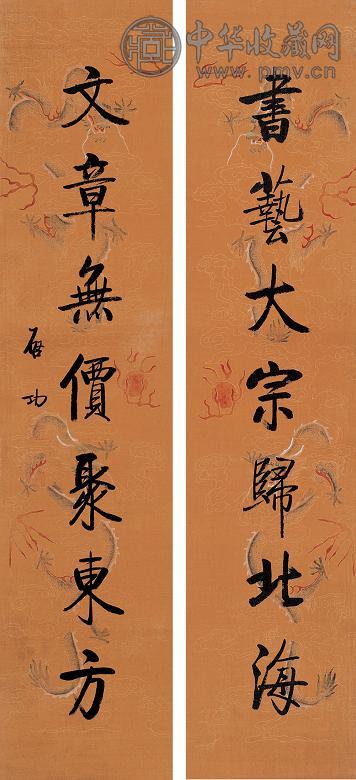 中华收藏网
www.pmv.cn
書藝大宗歸北海
文章無價聚東方
啟功